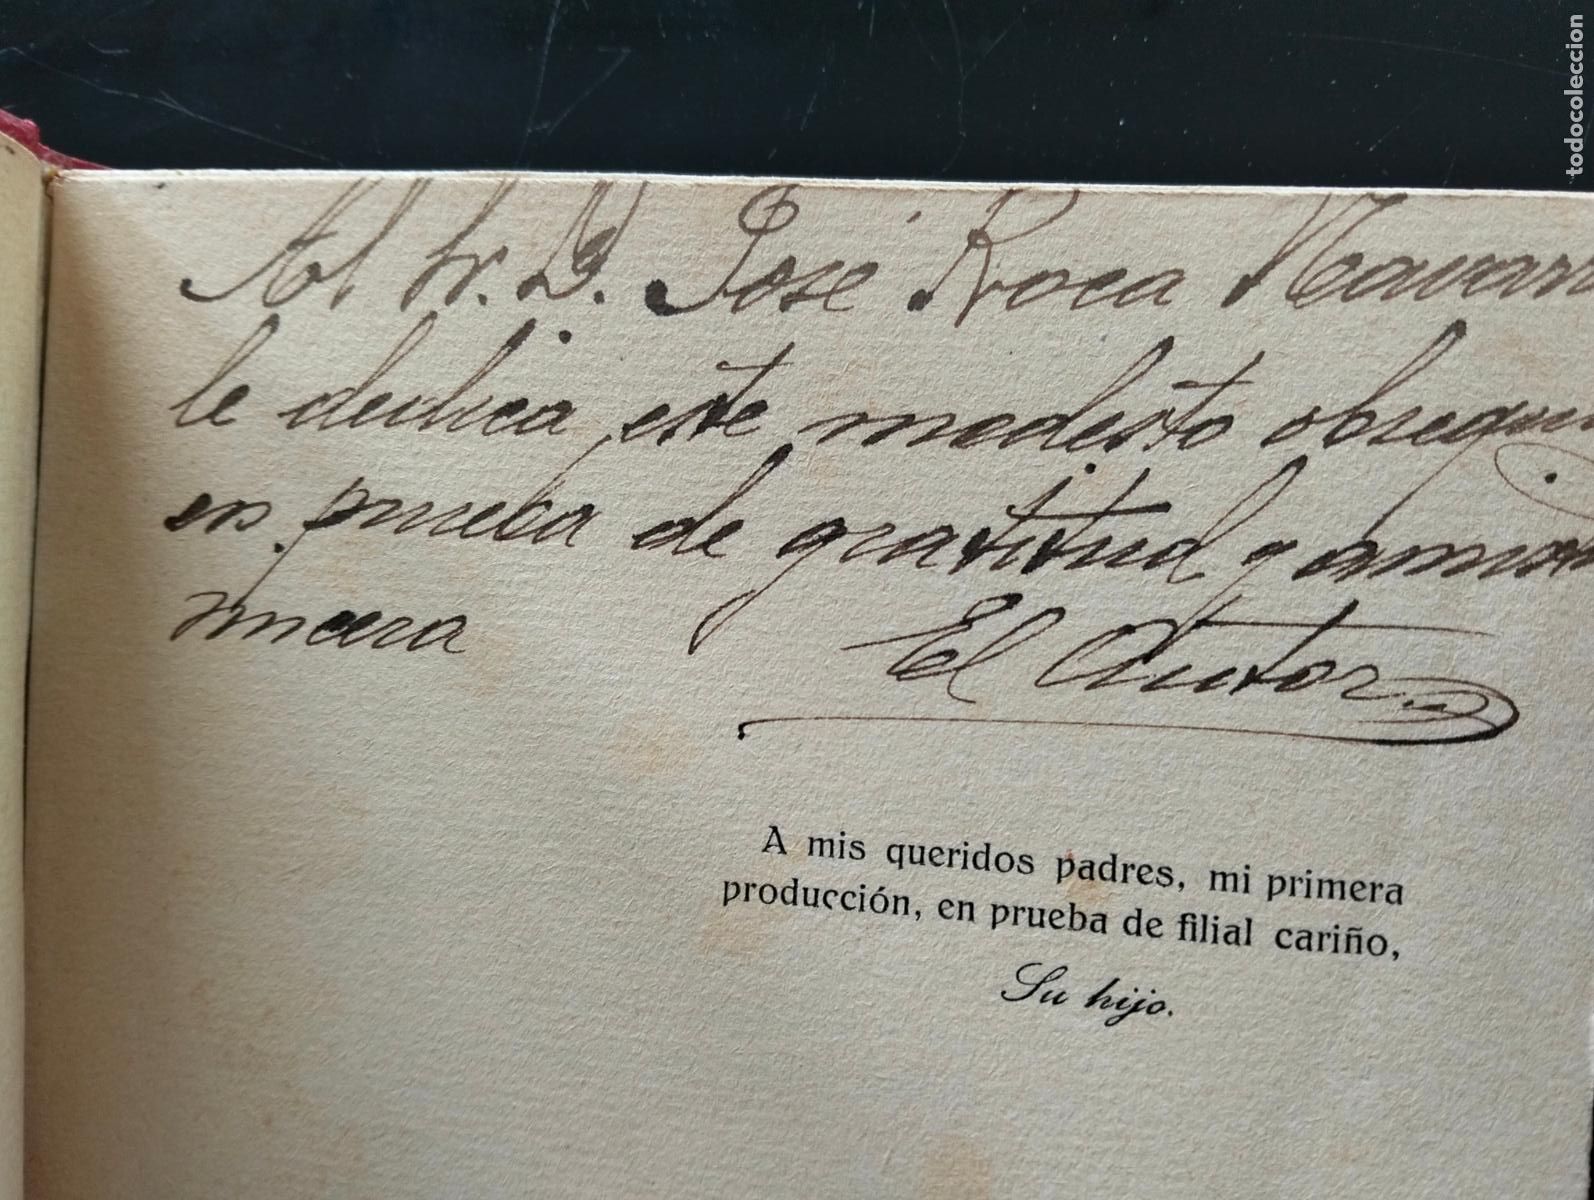 Al Sr. D. José Roca Navarr
le dedica este modesto obsequi
en prueba de gratitud y amis
sincera
El Autor
A mis queridos padres, mi primera
producción, en prueba de filial cariño,
Su hijo.
todocoleccion